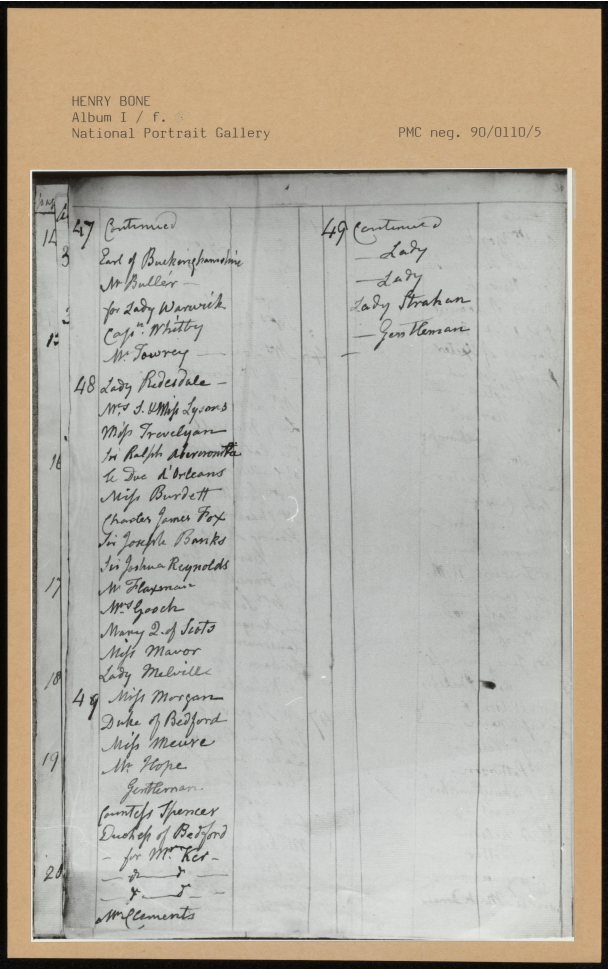 HENRY BONE
Album I / f.
National Portrait Gallery
PMC neg. 90/0110/5
47 Continued
Earl of Buckinghamshire
Mr Buller —
for Lady Warwick
Capn. Whitby
Mr Towrey —
48 Lady Redesdale —
Mrs S. & Miss Lysons
Miss Trevelyan
Sir Ralph Abercrombie
le Duc d'Orleans
Miss Burdett
Charles James Fox
Sir Joseph Banks
Sir Joshua Reynolds
Mr Flaxman
Mrs Gooch
Mary Q. of Scots
Miss Mavor
Lady Melville
49 Miss Morgan
Duke of Bedford
Miss Meure
Mr Hope
Gentleman.
Countess Spencer
Duchess of Bedford
— for Mr Ker —
— d — d —
— d — d —
Mr Clements
49 Continued
— Lady
— Lady
Lady Strahan
— Gentleman
—
14
3
15
16
17
18
19
20